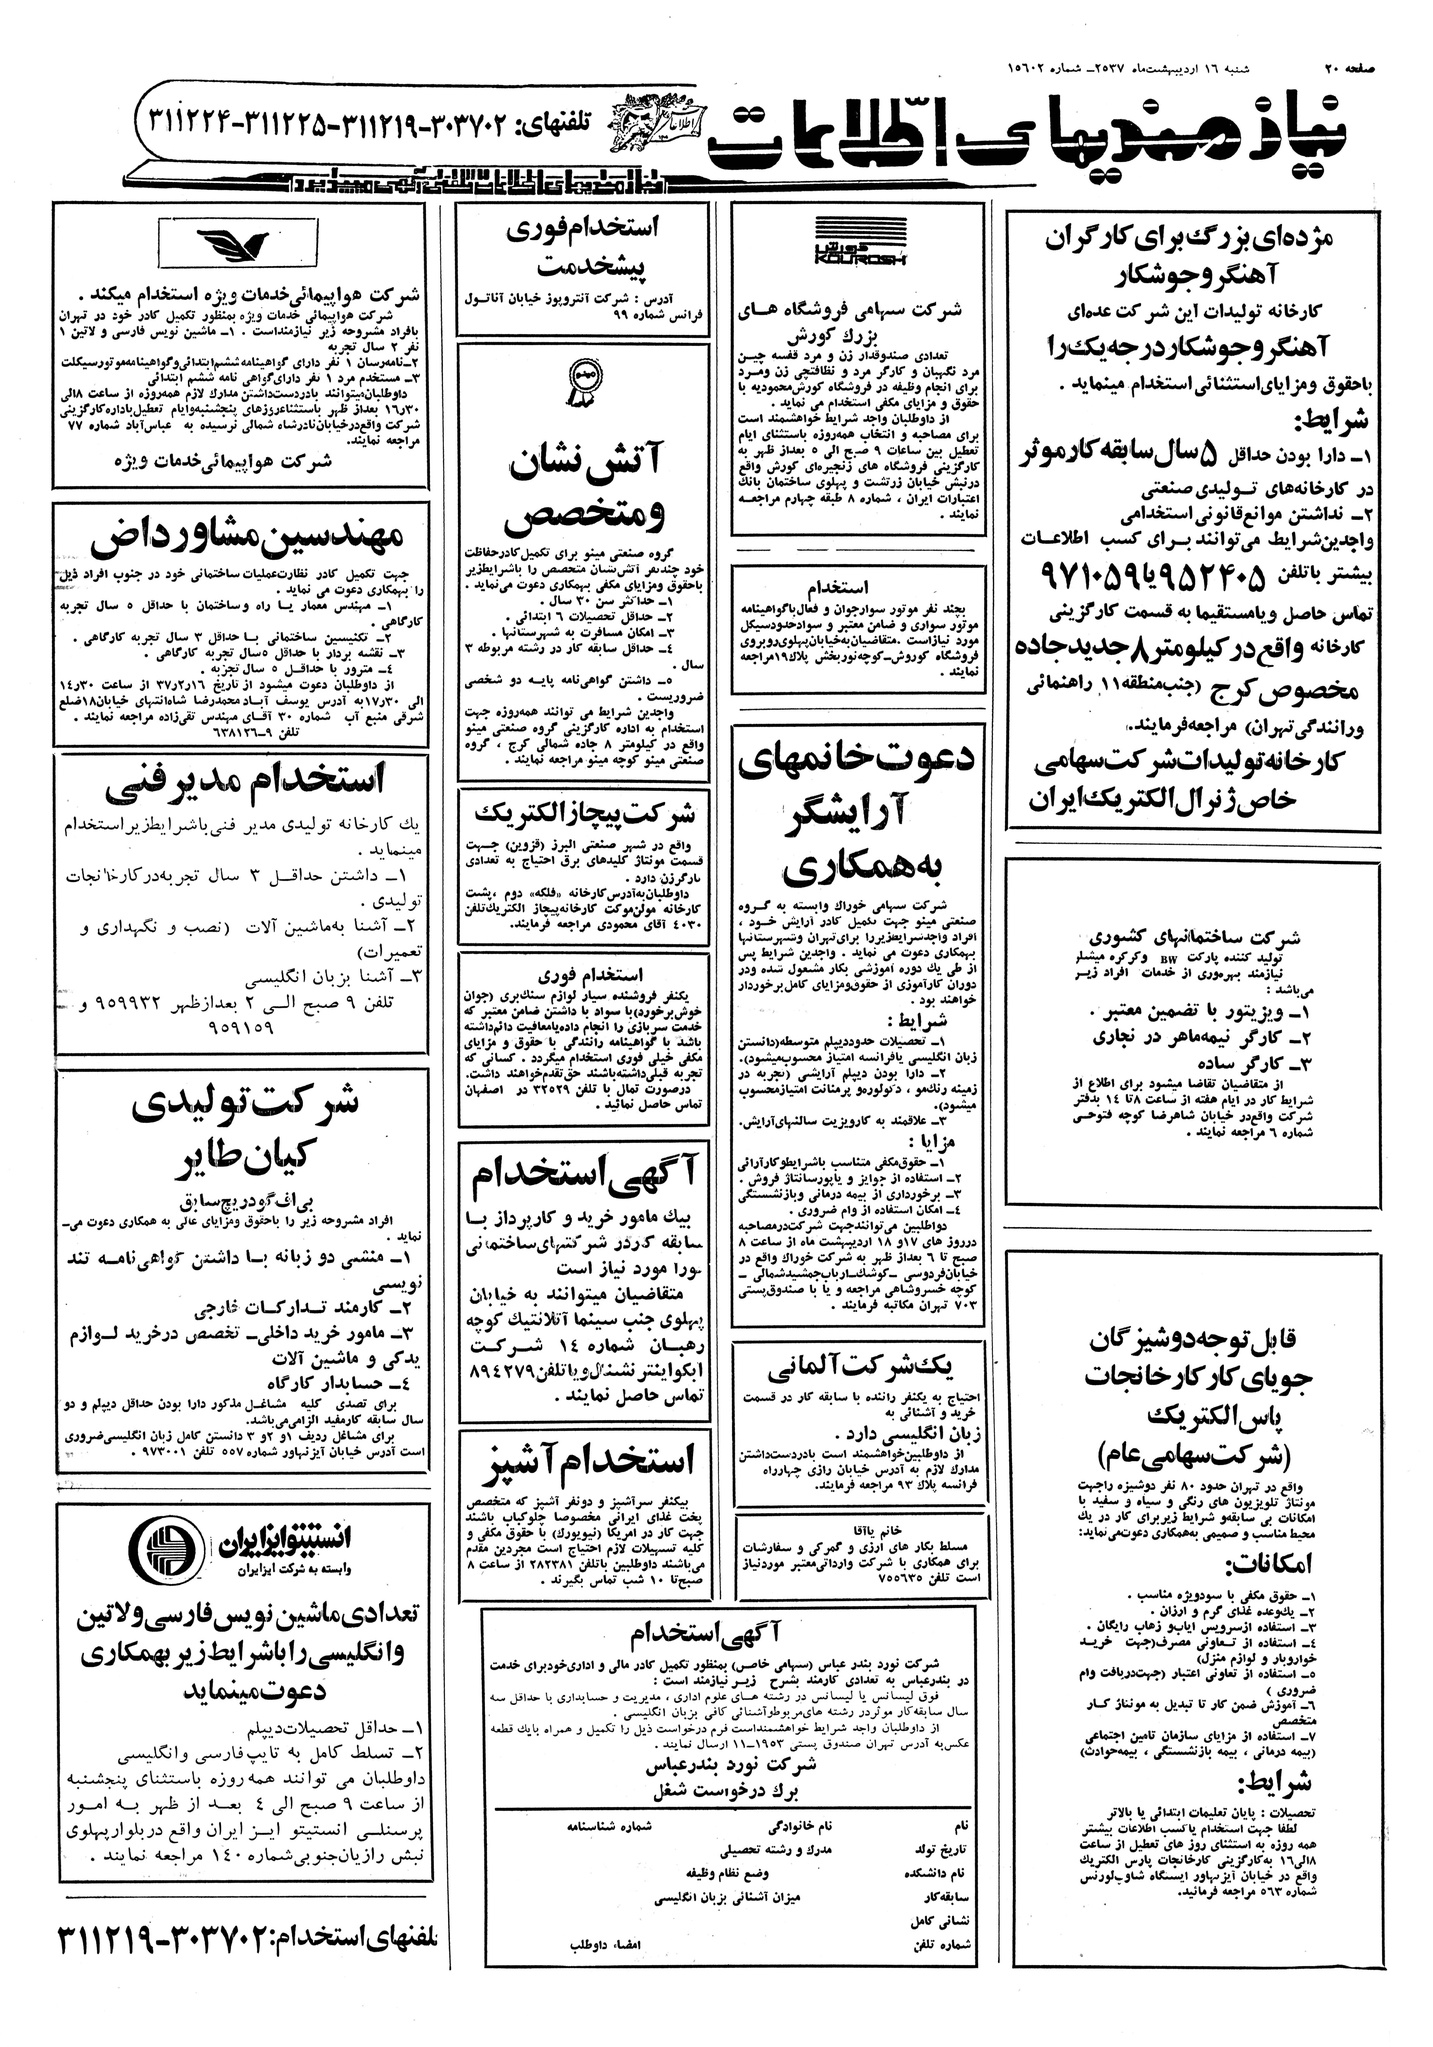 صفحه ۲۰
شنبه ۱۶ اردیبهشت‌ماه ۲۵۳۷ـ شماره ۱۵۶۰۲
نیازمندیهای اطلاعات
تلفنهای: ۳۰۳۷۰۲-۳۱۱۲۱۹-۳۱۱۲۲۵-۳۱۱۲۲۴
نیازمندیهای اطلاعات تلفنی آگهی میپذیرد
مژده‌ای بزرگ برای کارگران
آهنگر و جوشکار
کارخانه تولیدات این شرکت عده‌ای
آهنگر و جوشکار درجه یک را
با حقوق و مزایای استثنائی استخدام مینماید .
شرایط:
۱ـ دارا بودن حداقل ۵ سال سابقه کار موثر
در کارخانه‌های تولیدی صنعتی
۲ـ نداشتن موانع قانونی استخدامی
واجدین شرایط می‌توانند برای کسب اطلاعات
بیشتر با تلفن ۹۵۲۴۰۵ یا ۹۷۱۰۵۹
تماس حاصل و یا مستقیما به قسمت کارگزینی
کارخانه واقع در کیلومتر ۸ جدید جاده
مخصوص کرج (جنب منطقه ۱۱ راهنمائی
ورانندگی تهران) مراجعه فرمایند.
کارخانه تولیدات شرکت سهامی
خاص ژنرال الکتریک ایران
شرکت ساختمانهای کشوری
تولید کننده پارکت BW وکرکره میشلر
نیازمند بهره‌وری از خدمات افراد زیر
می‌باشد :
۱ـ ویزیتور با تضمین معتبر .
۲ـ کارگر نیمه‌ماهر در نجاری
۳ـ کارگر ساده
از متقاضیان تقاضا میشود برای اطلاع از
شرایط کار در ایام هفته از ساعت ۸ تا ۱۴ بدفتر
شرکت واقع در خیابان شاهرضا کوچه فتوحی
شماره ۶ مراجعه نمایند .
قابل توجه دوشیزگان
جویای کار کارخانجات
پاس الکتریک
(شرکت سهامی عام)
واقع در تهران حدود ۸۰ نفر دوشیزه راجهت
مونتاژ تلویزیون های رنگی و سیاه و سفید با
امکانات بی سابقه و شرایط زیر برای کار در یک
محیط مناسب و صمیمی به همکاری دعوت می‌نماید:
امکانات:
۱ـ حقوق مکفی با سود ویژه مناسب .
۲ـ یک وعده غذای گرم و ارزان .
۳ـ استفاده از سرویس ایاب و ذهاب رایگان .
۴ـ استفاده از تعاونی مصرف (جهت خرید
خواروبار و لوازم منزل)
۵ـ استفاده از تعاونی اعتبار (جهت دریافت وام
ضروری)
۶ـ آموزش ضمن کار تا تبدیل به مونتاژ کار
متخصص
۷ـ استفاده از مزایای سازمان تامین اجتماعی
(بیمه درمانی ، بیمه بازنشستگی ، بیمه حوادث)
شرایط:
تحصیلات : پایان تعلیمات ابتدائی یا بالاتر
لطفا جهت استخدام یا کسب اطلاعات بیشتر
همه روزه به استثنای روز های تعطیل از ساعت
۸ الی ۱۶ به کارگزینی کارخانجات پارس الکتریک
واقع در خیابان آیزنهاور ایستگاه شاوب‌لورنس
شماره ۵۶۳ مراجعه فرمائید.
کورش
KOUROSH
شرکت سهامی فروشگاه های
بزرگ کورش
تعدادی صندوقدار زن و مرد قفسه چین
مرد نگهبان و کارگر مرد و نظافتچی زن و مرد
برای انجام وظیفه در فروشگاه کورش محمودیه با
حقوق و مزایای مکفی استخدام می نماید .
از داوطلبان واجد شرایط خواهشمند است
برای مصاحبه و انتخاب همه‌روزه باستثنای ایام
تعطیل بین ساعات ۹ صبح الی ۵ بعداز ظهر به
کارگزینی فروشگاه های زنجیره‌ای کورش واقع
درنبش خیابان زرتشت و پهلوی ساختمان بانک
اعتبارات ایران ، شماره ۸ طبقه چهارم مراجعه
نمایند .
استخدام
بچند نفر موتور سوار جوان و فعال با گواهینامه
موتور سواری و ضامن معتبر و سواد حدود سیکل
مورد نیاز است. متقاضیان به خیابان پهلوی روبروی
فروشگاه کوروش ـ کوچه نوربخش پلاک ۱۹ مراجعه
نمایند .
دعوت خانمهای
آرایشگر
به همکاری
شرکت سهامی خوراک وابسته به گروه
صنعتی مینو جهت تکمیل کادر آرایش خود ،
افراد واجد شرایط زیر را برای تهران و شهرستانها
بهمکاری دعوت می نماید . واجدین شرایط پس
از طی یک دوره آموزشی بکار مشغول شده و در
دوران کارآموزی از حقوق و مزایای کامل برخوردار
خواهند بود .
شرایط :
۱ـ تحصیلات حدود دیپلم متوسطه (دانستن
زبان انگلیسی یا فرانسه امتیاز محسوب میشود).
۲ـ دارا بودن دیپلم آرایشی (تجربه در
زمینه رنگ مو ، دکولوره و پرمانت امتیاز محسوب
میشود).
۳ـ علاقمند به کار ویزیت سالنهای آرایش.
مزایا :
۱ـ حقوق مکفی متناسب با شرایط و کارآرائی
۲ـ استفاده از جوایز و یا پورسانتاژ فروش .
۳ـ برخورداری از بیمه درمانی و بازنشستگی
۴ـ امکان استفاده از وام ضروری .
دواطلبین می‌توانند جهت شرکت در مصاحبه
درروز های ۱۷ و ۱۸ اردیبهشت ماه از ساعت ۸
صبح تا ۶ بعداز ظهر به شرکت خوراک واقع در
خیابان فردوسی ـ کوشک ـ ارباب جمشید شمالی ـ
کوچه خسرو شاهی مراجعه و یا با صندوق پستی
۷۰۳ تهران مکاتبه فرمایند .
یک شرکت آلمانی
احتیاج به یکنفر راننده با سابقه کار در قسمت
خرید و آشنائی به
زبان انگلیسی دارد .
از داوطلبین خواهشمند است با در دست داشتن
مدارک لازم به آدرس خیابان رازی چهارراه
فرانسه پلاک ۹۳ مراجعه فرمایند.
خانم یا آقا
مسلط بکار های ارزی و گمرکی و سفارشات
برای همکاری با شرکت وارداتی معتبر مورد نیاز
است تلفن ۷۵۵۶۳۵
استخدام فوری
پیشخدمت
آدرس : شرکت آنتروپوز خیابان آناتول
فرانس شماره ۹۹
مینو
آتش نشان
ومتخصص
گروه صنعتی مینو برای تکمیل کادر حفاظت
خود چند نفر آتش نشان متخصص را با شرایط زیر
با حقوق و مزایای مکفی بهمکاری دعوت می‌نماید .
۱ـ حداکثر سن ۳۰ سال .
۲ـ حداقل تحصیلات ۶ ابتدائی .
۳ـ امکان مسافرت به شهرستانها .
۴ـ حداقل سابقه کار در رشته مربوطه ۳
سال .
۵ـ داشتن گواهی‌نامه پایه دو شخصی
ضروریست .
واجدین شرایط می توانند همه‌روزه جهت
استخدام به اداره کارگزینی گروه صنعتی مینو
واقع در کیلومتر ۸ جاده شمالی کرج ، گروه
صنعتی مینو کوچه مینو مراجعه نمایند .
شرکت پیچاز الکتریک
واقع در شهر صنعتی البرز (قزوین) جهت
قسمت مونتاژ کلیدهای برق احتیاج به تعدادی
کارگر زن دارد .
داوطلبان به آدرس کارخانه «فلکه» دوم ، پشت
کارخانه مولن موکت کارخانه پیچاز الکتریک تلفن
۴۰۳۰ آقای محمودی مراجعه فرمایند.
استخدام فوری
یکنفر فروشنده سیار لوازم سنگبری (جوان
خوش برخورد) با سواد با داشتن ضامن معتبر که
خدمت سربازی را انجام داده یا معافیت دائم داشته
باشد با گواهینامه رانندگی با حقوق و مزایای
مکفی خیلی فوری استخدام میگردد . کسانی که
تجربه قبلی داشته باشند حق تقدم خواهند داشت.
در صورت تمال با تلفن ۳۲۵۲۹ در اصفهان
تماس حاصل نمائید .
آگهی استخدام
بیک مامور خرید و کارپرداز با
سابقه کار در شرکتهای ساختمانی
فورا مورد نیاز است
متقاضیان میتوانند به خیابان
پهلوی جنب سینما آتلانتیک کوچه
رهبان شماره ۱۴ شرکت
ابکو اینتر نشنال و یا تلفن ۸۹۴۲۷۹
تماس حاصل نمایند .
استخدام آشپز
بیکنفر سرآشپز و دونفر آشپز که متخصص
پخت غذای ایرانی مخصوصا چلوکباب باشند
جهت کار در امریکا (نیویورک) با حقوق مکفی و
کلیه تسهیلات لازم احتیاج است مجردین مقدم
می‌باشند داوطلبین با تلفن ۲۸۲۳۸۱ از ساعت ۸
صبح تا ۱۰ شب تماس بگیرند .
آگهی استخدام
شرکت نورد بندر عباس (سهامی خاص) بمنظور تکمیل کادر مالی و اداری خود برای خدمت
در بندرعباس به تعدادی کارمند بشرح زیر نیازمند است :
فوق لیسانس یا لیسانس در رشته های علوم اداری ، مدیریت و حسابداری با حداقل سه
سال سابقه کار موثر در رشته های مربوط و آشنائی کافی بزبان انگلیسی .
از داوطلبان واجد شرایط خواهشمند است فرم درخواست ذیل را تکمیل و همراه با یک قطعه
عکس به آدرس تهران صندوق پستی ۱۹۵۳-۱۱ ارسال نمایند .
شرکت نورد بندرعباس
برگ درخواست شغل
نام
نام خانوادگی
شماره شناسنامه
تاریخ تولد
مدرک و رشته تحصیلی
نام دانشکده
وضع نظام وظیفه
سابقه کار
میزان آشنائی بزبان انگلیسی
نشانی کامل
شماره تلفن
امضاء داوطلب
شرکت هواپیمائی خدمات ویژه استخدام میکند .
شرکت هواپیمائی خدمات ویژه بمنظور تکمیل کادر خود در تهران
بافراد مشروحه زیر نیازمند است . ۱ـ ماشین نویس فارسی و لاتین ۱
نفر ۲ سال تجربه
۲ـ نامه‌رسان ۱ نفر دارای گواهینامه ششم ابتدائی و گواهینامه موتورسیکلت
۳ـ مستخدم مرد ۱ نفر دارای گواهی نامه ششم ابتدائی
داوطلبان میتوانند با در دست داشتن مدارک لازم همه‌روزه از ساعت ۸ الی
۱۶٫۳۰ بعداز ظهر باستثناء روزهای پنجشنبه و ایام تعطیل باداره کارگزینی
شرکت واقع در خیابان نادرشاه شمالی نرسیده به عباس‌آباد شماره ۷۷
مراجعه نمایند.
شرکت هواپیمائی خدمات ویژه
مهندسین مشاور داض
جهت تکمیل کادر نظارت عملیات ساختمانی خود در جنوب افراد ذیل
را بهمکاری دعوت می نماید .
۱ـ مهندس معمار یا راه و ساختمان با حداقل ۵ سال تجربه
کارگاهی .
۲ـ تکنیسین ساختمانی با حداقل ۳ سال تجربه کارگاهی .
۳ـ نقشه بردار با حداقل ۵ سال تجربه کارگاهی .
۴ـ مترور با حداقل ۵ سال تجربه .
از داوطلبان دعوت میشود از تاریخ ۳۷٫۲٫۱۶ از ساعت ۱۴٫۳۰
الی ۱۷٫۳۰ به آدرس یوسف آباد محمدرضا شاه انتهای خیابان ۱۸ ضلع
شرقی منبع آب شماره ۳۰ آقای مهندس تقی‌زاده مراجعه نمایند .
تلفن ۹-۶۳۸۱۲۶
استخدام مدیر فنی
یک کارخانه تولیدی مدیر فنی با شرایط زیر استخدام
مینماید .
۱ـ داشتن حداقل ۳ سال تجربه در کارخانجات
تولیدی .
۲ـ آشنا به ماشین آلات (نصب و نگهداری و
تعمیرات)
۳ـ آشنا بزبان انگلیسی
تلفن ۹ صبح الی ۲ بعداز ظهر ۹۵۹۹۳۲ و
۹۵۹۱۵۹
شرکت تولیدی
کیان طایر
بی‌اف‌گودریچ سابق
افراد مشروحه زیر را با حقوق و مزایای عالی به همکاری دعوت می‌ـ
نماید .
۱ـ منشی دو زبانه با داشتن گواهی نامه تند
نویسی
۲ـ کارمند تدارکات خارجی
۳ـ مامور خرید داخلی ـ تخصص در خرید لوازم
یدکی و ماشین آلات
۴ـ حسابدار کارگاه
برای تصدی کلیه مشاغل مذکور دارا بودن حداقل دیپلم و دو
سال سابقه کار مفید الزامی می‌باشد.
برای مشاغل ردیف ۱ و ۲ و ۳ دانستن کامل زبان انگلیسی ضروری
است آدرس خیابان آیزنهاور شماره ۵۵۷ تلفن ۹۷۳۰۰۱ .
انستیتو ایز ایران
وابسته به شرکت ایز ایران
تعدادی ماشین نویس فارسی و لاتین
وانگلیسی را با شرایط زیر بهمکاری
دعوت مینماید
۱ـ حداقل تحصیلات دیپلم
۲ـ تسلط کامل به تایپ فارسی و انگلیسی
داوطلبان می توانند همه روزه باستثنای پنجشنبه
از ساعت ۹ صبح الی ۴ بعد از ظهر به امور
پرسنلی انستیتو ایز ایران واقع در بلوار پهلوی
نبش رازیان جنوبی شماره ۱۴۰ مراجعه نمایند .
تلفنهای استخدام: ۳۰۳۷۰۲-۳۱۱۲۱۹